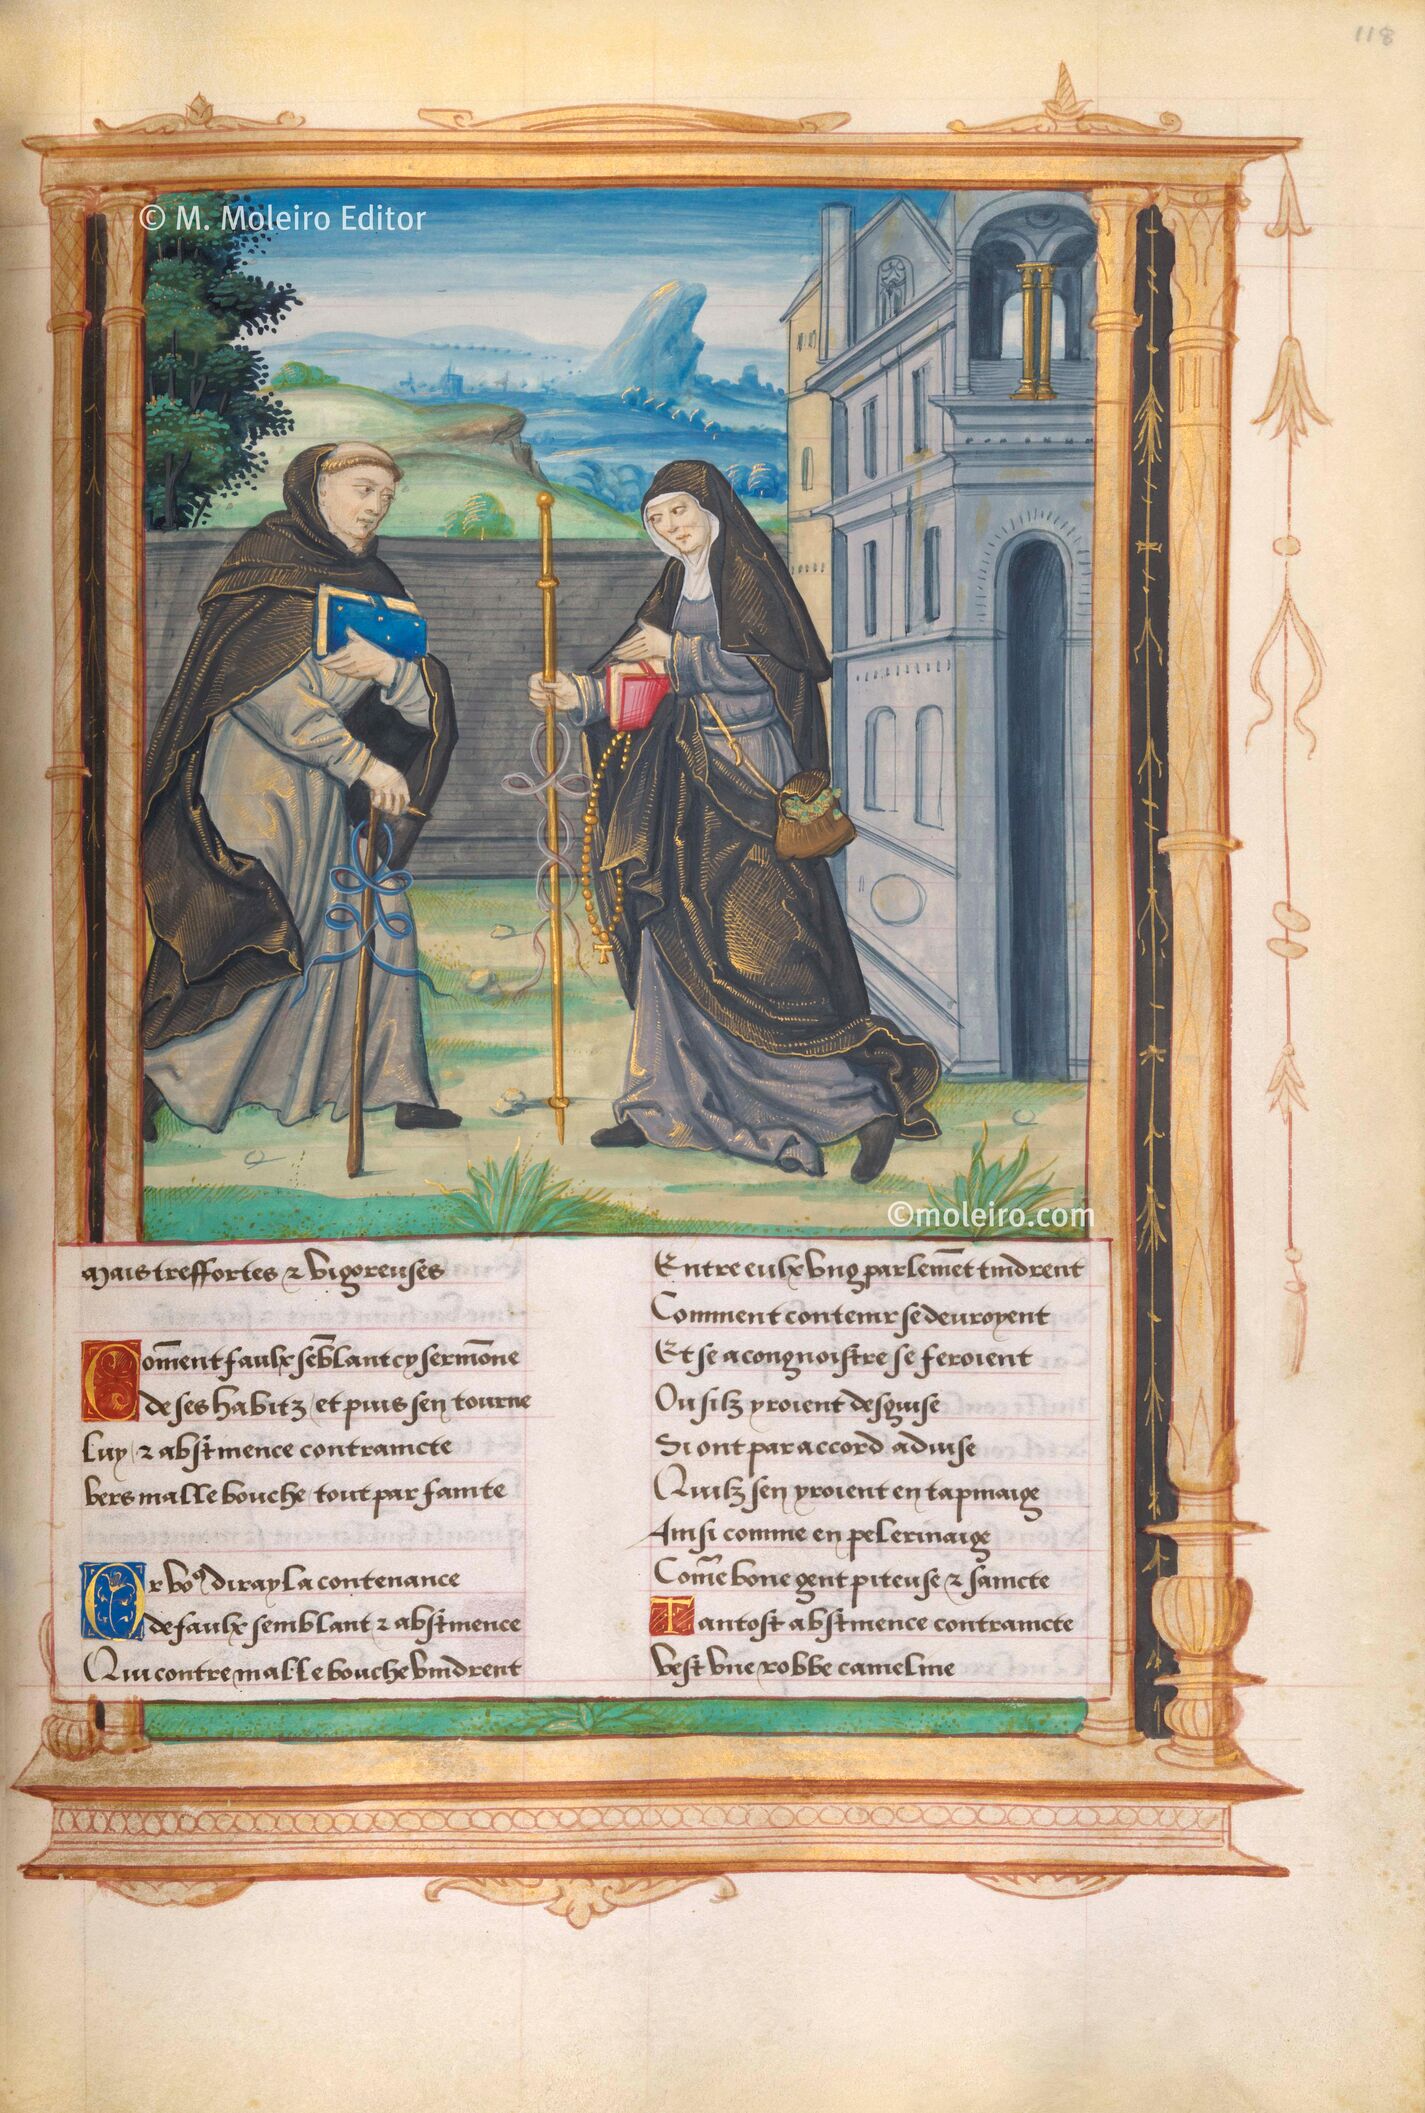 118
© M. Moleiro Editor
©moleiro.com
Mais treffortes ⁊ vigoreuses
Com̄ent faulx sēblant cy sermōne
de ses habitz / et puis sen tourne
Luy / ⁊ abstinence contraincte
vers malle bouche tout par fainte
Or voꝰ diray la contenance
de faulx semblant ⁊ abstinence
Qui contre malle bouche vindrent
Entre eulx vng parlemēt tindrent
Comment contenir se deuroyent
Et se a congnoistre se feroient
Ou silz yroient desguise
Si ont par accord aduise
Quilz sen yroient en tapinaige
Ainsi comme en pelerinaige
Com̄e bone gent piteuse ⁊ saincte
Tantost abstinence contraincte
Vest vne robbe cameline